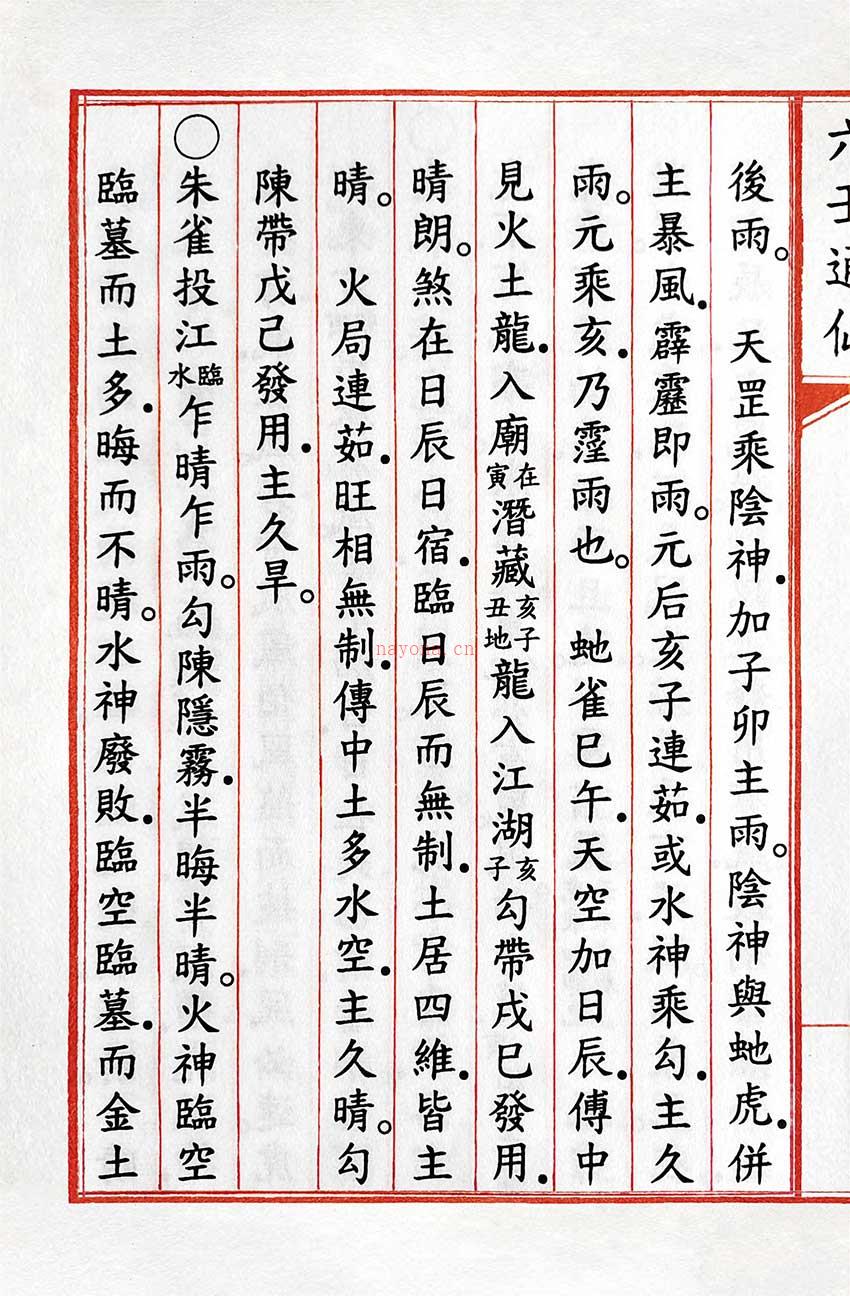 六壬通仙
後雨。 天罡乘陰神．加子卯主雨。陰神與虵虎．併
主暴風．霹靂即雨。元后亥子連茹．或水神乘勾．主久
雨。元乘亥．乃霪雨也。 虵雀巳午．天空加日辰．傳中
見火土龍．入廟在寅潛藏亥子丑地龍入江湖亥子勾帶戌巳發用．
晴朗。煞在日辰日宿．臨日辰而無制．土居四維．皆主
晴。 火局連茹．旺相無制．傳中土多水空．主久晴。勾
陳帶戊己發用．主久旱。
○朱雀投江臨水乍晴乍雨。勾陳隱霧．半晦半晴。火神臨空
臨墓而土多．晦而不晴。水神廢敗．臨空臨墓．而金土
nayona.cn